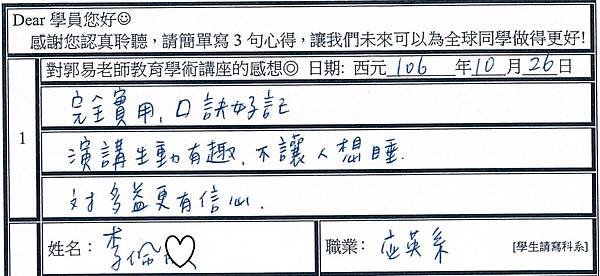 Dear 學員您好☺
感謝您認真聆聽，請簡單寫 3 句心得，讓我們未來可以為全球同學做得更好!
對郭易老師教育學術講座的感想◎ 日期: 西元 106 年 10 月 26 日
1
完全實用，口訣好記
演講生動有趣，不讓人想睡．
对多益更有信心．
姓名：李倫♡
職業：应英系 [學生請寫科系]